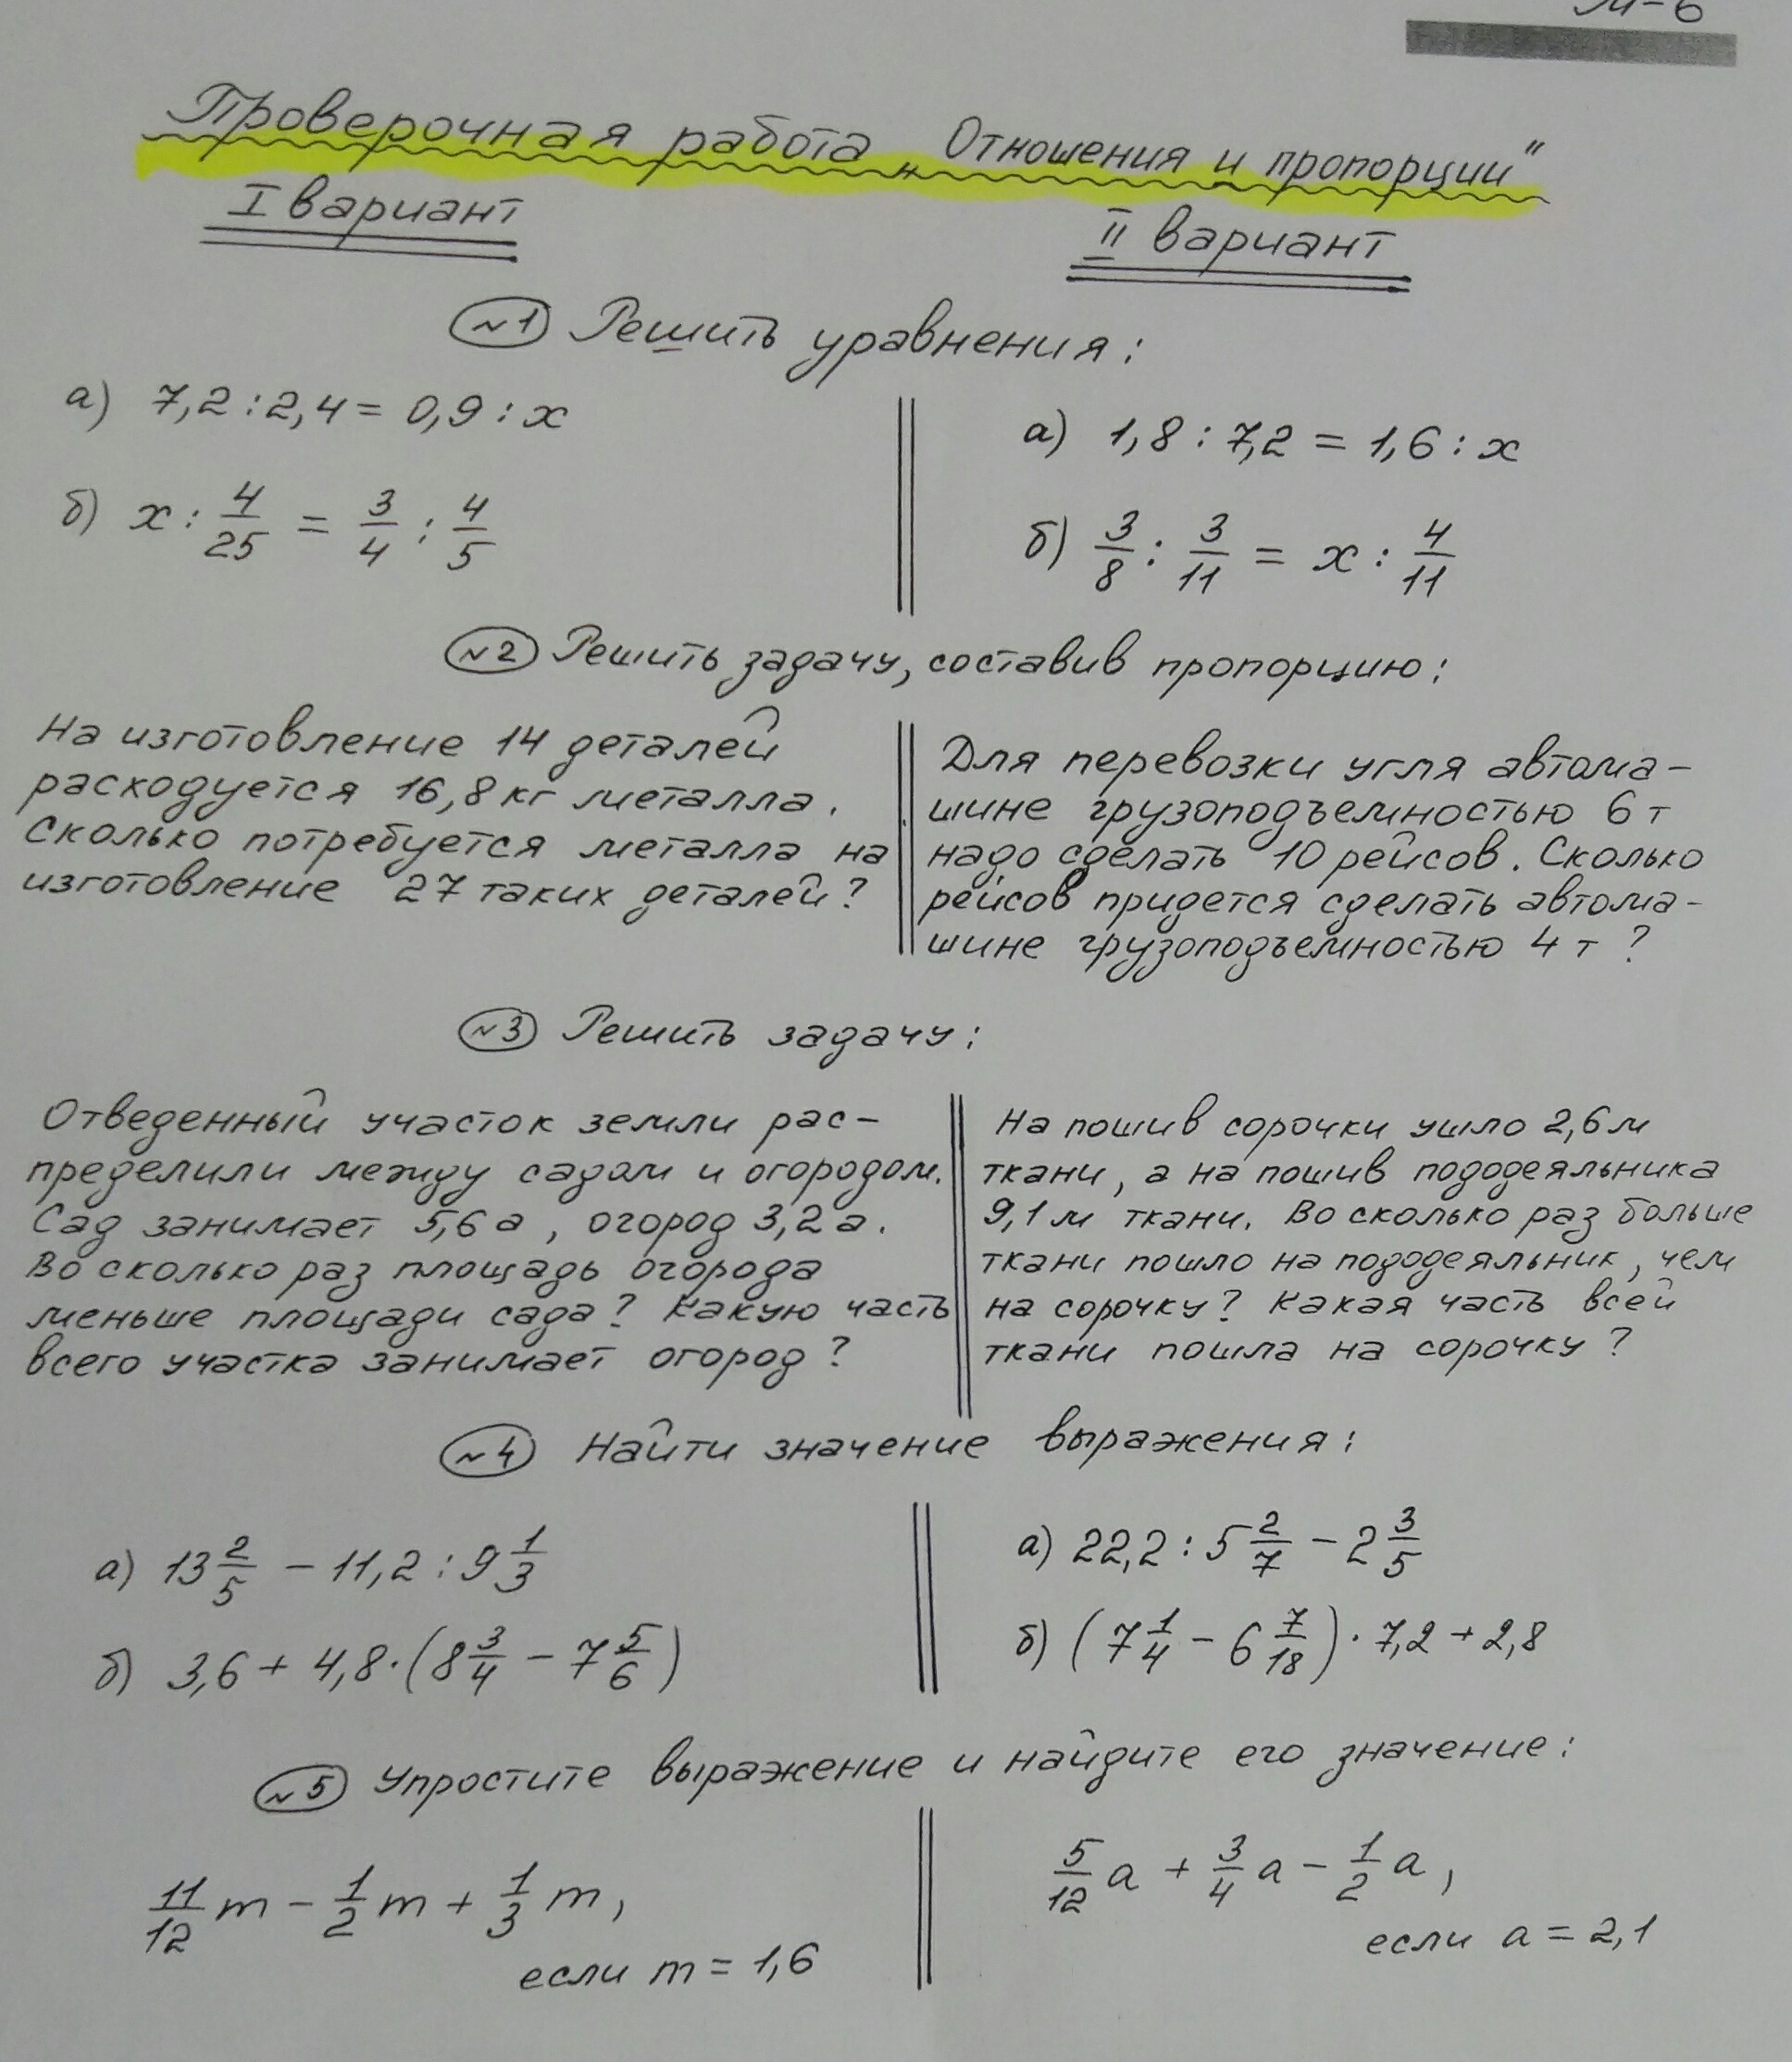 М-6
Проверочная работа „Отношения и пропорции"
I вариант
II вариант
№1 Решить уравнения:
а) 7,2 : 2,4 = 0,9 : x
б) x : 4/25 = 3/4 : 4/5
а) 1,8 : 7,2 = 1,6 : x
б) 3/8 : 3/11 = x : 4/11
№2 Решить задачу, составив пропорцию:
На изготовление 14 деталей
расходуется 16,8 кг металла.
Сколько потребуется металла на
изготовление 27 таких деталей?
Для перевозки угля автома-
шине грузоподъемностью 6 т
надо сделать 10 рейсов. Сколько
рейсов придется сделать автома-
шине грузоподъемностью 4 т ?
№3 Решить задачу:
Отведенный участок земли рас-
пределили между садом и огородом.
Сад занимает 5,6 а, огород 3,2 а.
Во сколько раз площадь огорода
меньше площади сада? Какую часть
всего участка занимает огород?
На пошив сорочки ушло 2,6 м
ткани, а на пошив пододеяльника
9,1 м ткани. Во сколько раз больше
ткани пошло на пододеяльник, чем
на сорочку? Какая часть всей
ткани пошла на сорочку?
№4 Найти значение выражения:
а) 13 2/5 - 11,2 : 9 1/3
б) 3,6 + 4,8 · (8 3/4 - 7 5/6)
а) 22,2 : 5 2/7 - 2 3/5
б) (7 1/4 - 6 7/18) · 7,2 + 2,8
№5 Упростите выражение и найдите его значение:
11/12 m - 1/2 m + 1/3 m,
если m = 1,6
5/12 a + 3/4 a - 1/2 a,
если a = 2,1